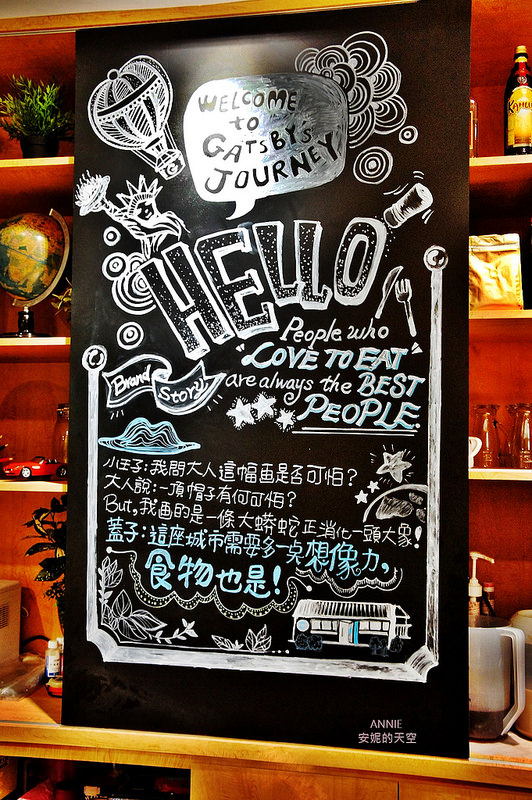 WELCOME
to
GATSBY'S
JOURNEY
HELLO
People who
"LOVE TO EAT"
are always the BEST
PEOPLE.
Brand
Story
小王子:我問大人這幅畫是否可怕?
大人說:一頂帽子有何可怕?
But,我画的是一條大蟒蛇正消化一頭大象!
蓋子:這座城市需要多一点想像力,
食物也是!
ANNIE
安妮的天空